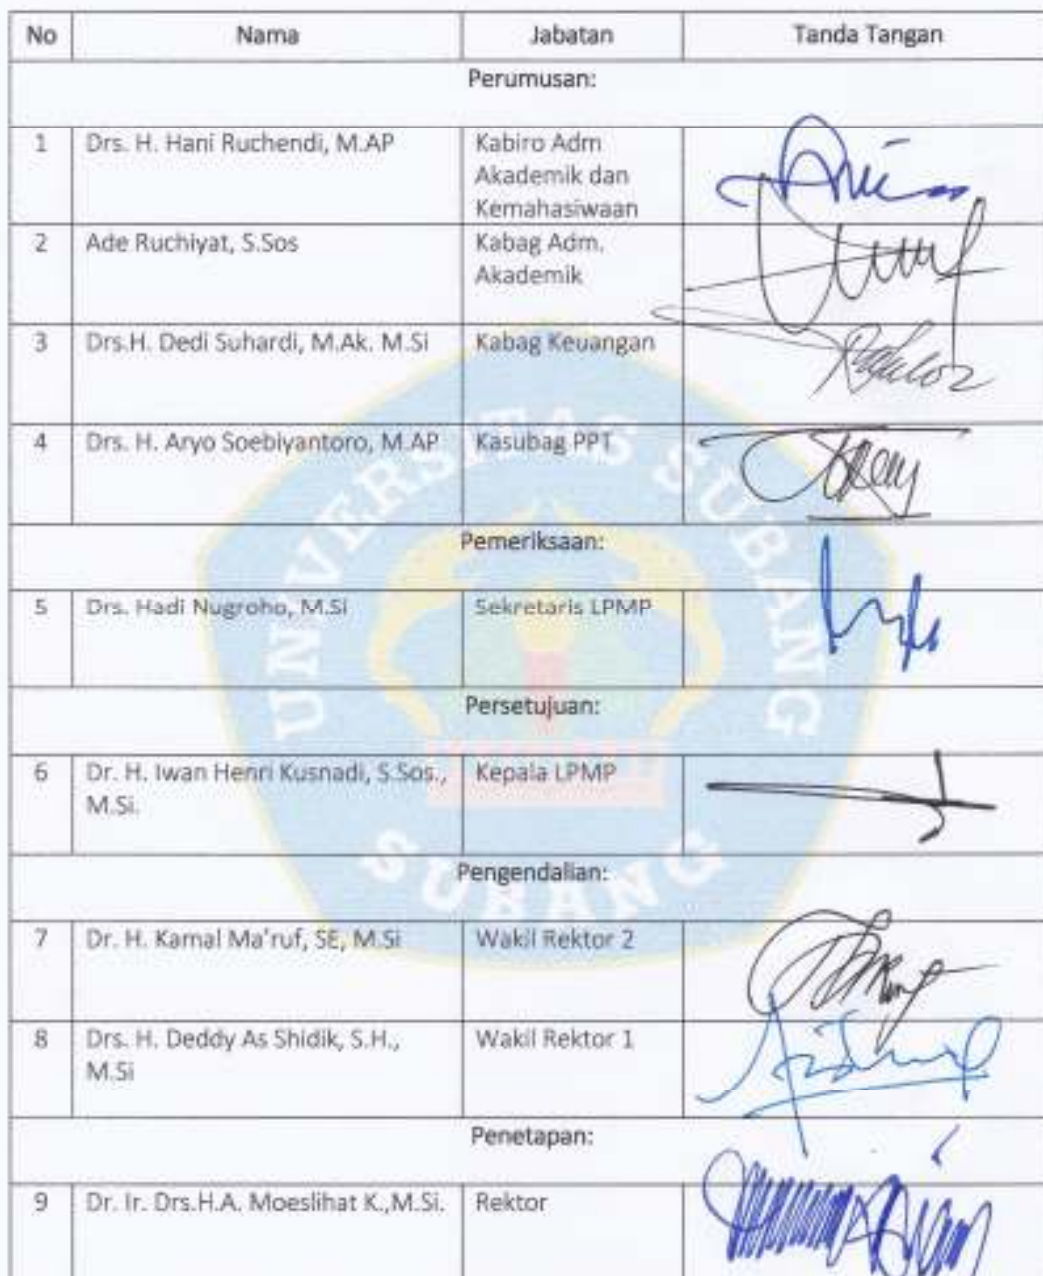 No Nama Jabatan Tanda Tangan
Perumusan:
1 Drs. H. Hani Ruchendi, M.AP Kabiro Adm
Akademik dan
Kemahasiwaan
2 Ade Ruchiyat, S.Sos Kabag Adm.
Akademik
3 Drs.H. Dedi Suhardi, M.Ak. M.Si Kabag Keuangan
4 Drs. H. Aryo Soebiyantoro, M.AP Kasubag PPT
Pemeriksaan:
5 Drs. Hadi Nugroho, M.Si Sekretaris LPMP
Persetujuan:
6 Dr. H. Iwan Henri Kusnadi, S.Sos., Kepala LPMP
M.Si.
Pengendalian:
7 Dr. H. Kamal Ma'ruf, SE, M.Si Wakil Rektor 2
8 Drs. H. Deddy As Shidik, S.H., Wakil Rektor 1
M.Si
Penetapan:
9 Dr. Ir. Drs.H.A. Moeslihat K.,M.Si. Rektor
UNIVERSITAS SUBANG
SUBANG